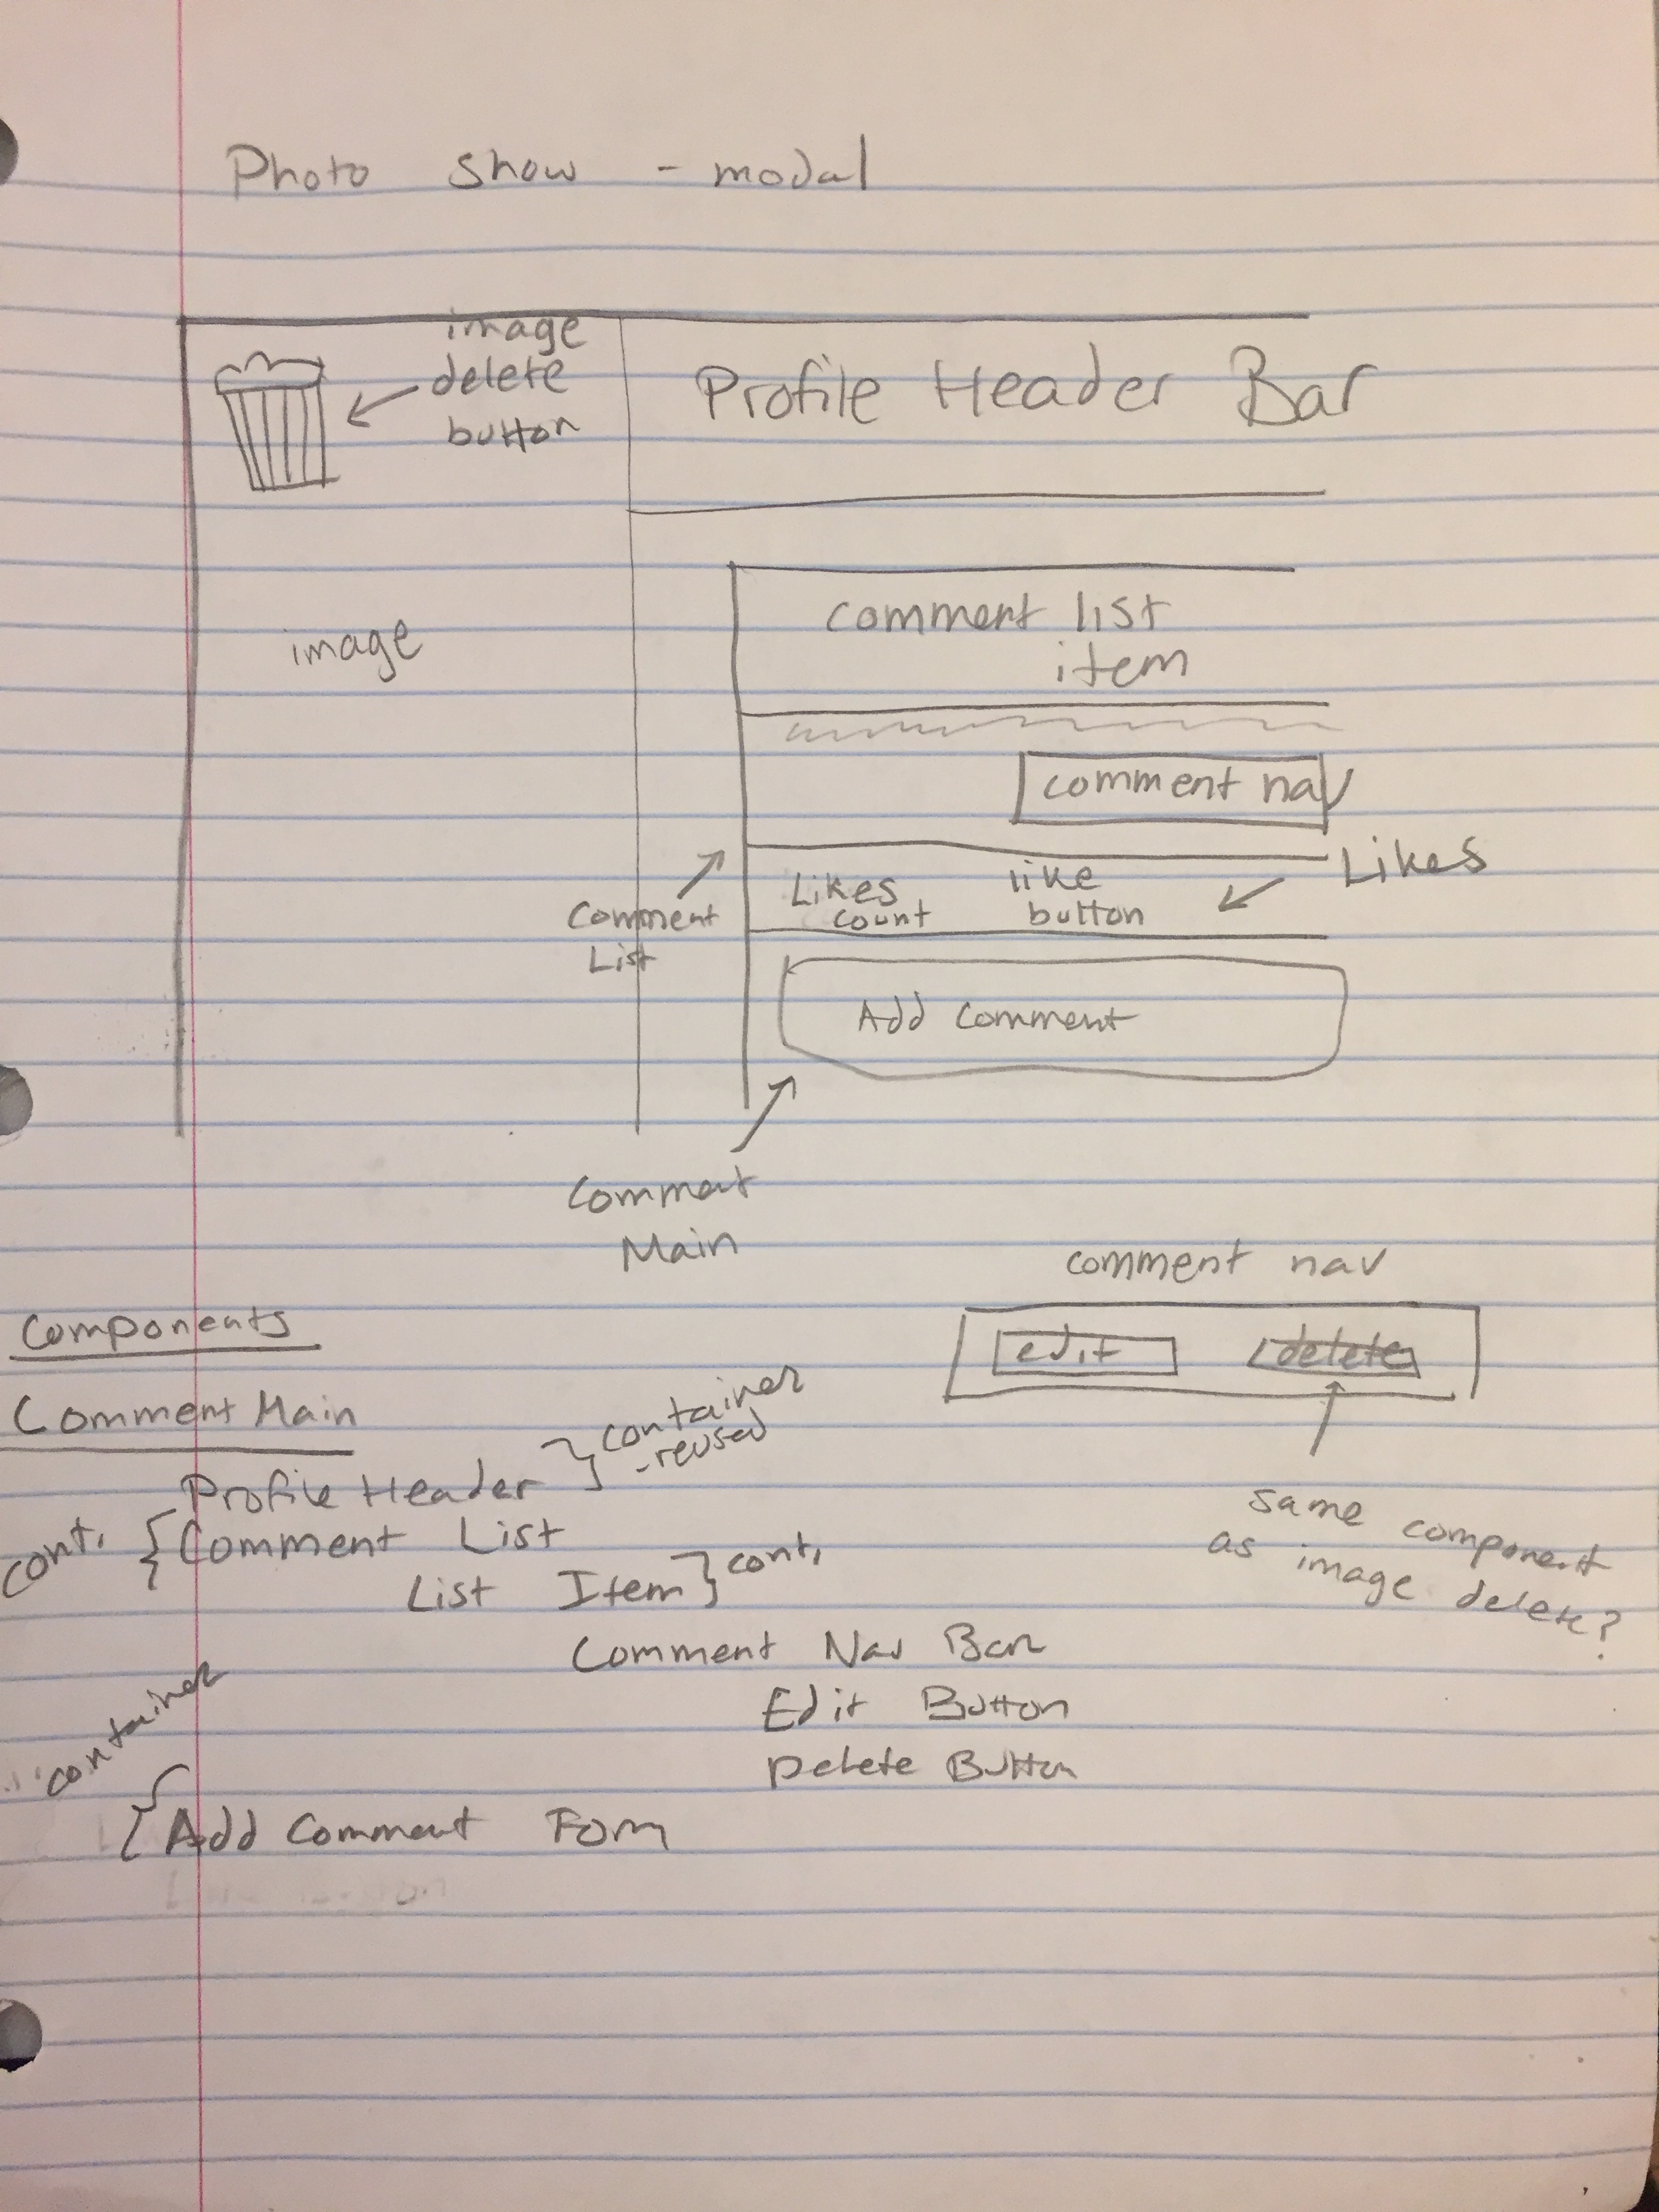 Photo show - modal
image
delete
button
Profile Header Bar
image
comment list
item
comment nav
Likes
Likes
count
like
button
Comment
List
Add Comment
Comment
Main
comment nav
edit
delete
same component
as image delete?
Components
Comment Main
Profile Header
container
-reused
cont.
Comment List
List Item
cont.
Comment Nav Bar
Edit Button
Delete Button
container
Add Comment Form